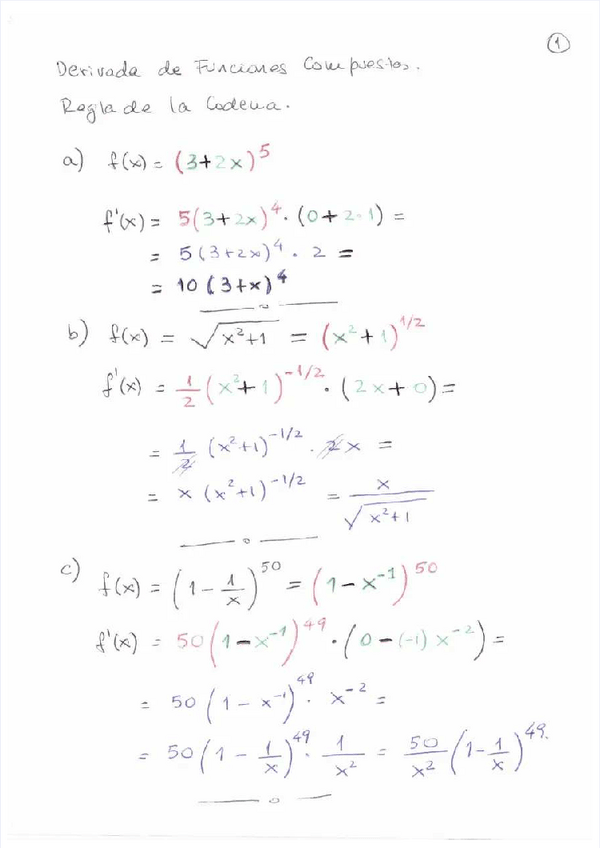 1
Derivada de Funciones Compuestas.
Regla de la Cadena.
a) f(x) = (3+2x)^5
f'(x) = 5(3+2x)^4 · (0+2·1) =
= 5(3+2x)^4 · 2 =
= 10(3+x)^4
b) f(x) = √(x²+1) = (x²+1)^1/2
f'(x) = 1/2 (x²+1)^-1/2 · (2x+0) =
= 1/2 (x²+1)^-1/2 · 2x =
= x (x²+1)^-1/2 = x/√(x²+1)
c) f(x) = (1 - 1/x)^50 = (1 - x^-1)^50
f'(x) = 50(1 - x^-1)^49 · (0 - (-1) x^-2) =
= 50(1 - x^-1)^49 · x^-2 =
= 50(1 - 1/x)^49 · 1/x² = 50/x² (1 - 1/x)^49.